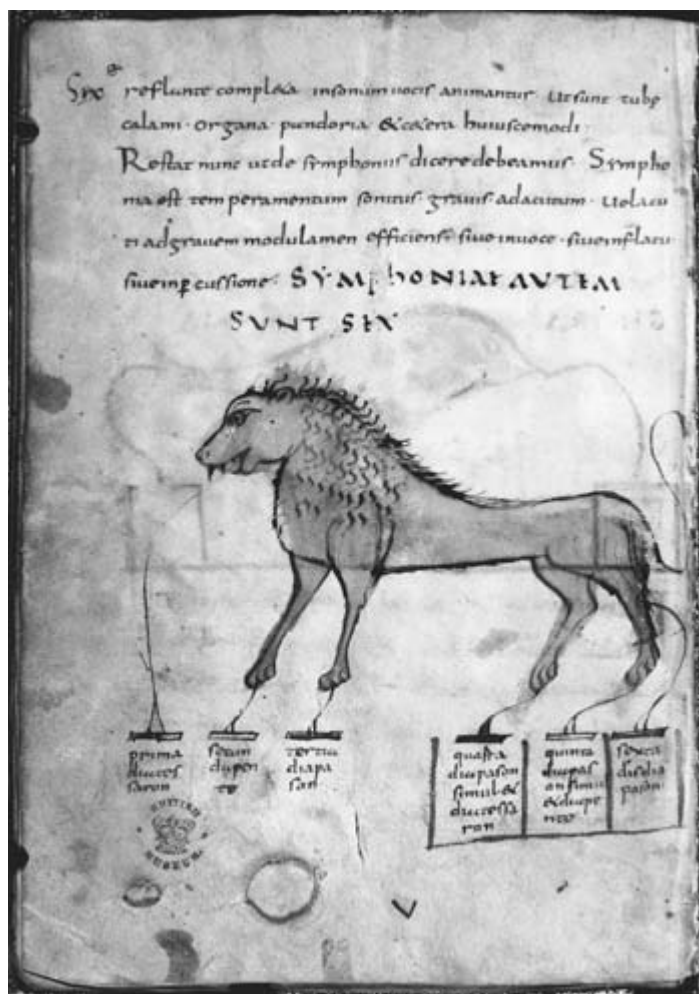 reflante compl&a insonum uocis animantur. Ut sunt tube
calami. Organa. pandoria &c&era huiuscemodi.
Restat nunc ut de symphoniis dicere debeamus. Sympho
nia est temperamentum sonitus. grauis adacutum. uelacu
ti adgrauem modulamen efficiens. siue inuoce. siue inflatu
siue inp cussione. SYMPHONIAE AUTEM
SUNT SEX
prima
diates
saron
secun
diapen
te
tertia
diapa
son
quarta
diapason
simul &
diatessa
ron
quinta
diapas
on simul
& diape
nte
sexta
disdia
pason
BRITISH
MUSEUM